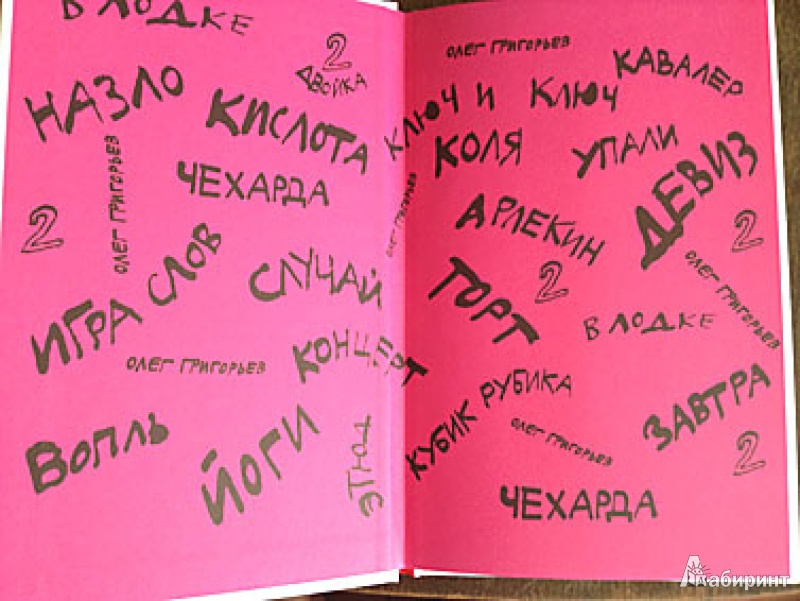 В ЛОДКЕ
2
ДВОЙКА
НАЗЛО
КИСЛОТА
ЧЕХАРДА
ОЛЕГ ГРИГОРЬЕВ
2
ИГРА СЛОВ
СЛУЧАЙ
КОНЦЕРТ
ОЛЕГ ГРИГОРЬЕВ
ВОПЛЬ
ЙОГИ
ЭТЮД
ОЛЕГ ГРИГОРЬЕВ
КАВАЛЕР
КЛЮЧ И КЛЮЧ
КОЛЯ
УПАЛИ
ДЕВИЗ
ОЛЕГ ГРИГОРЬЕВ
АРЛЕКИН
2
2
ТОРТ
ОЛЕГ ГРИГОРЬЕВ
В ЛОДКЕ
КУБИК РУБИКА
ЗАВТРА
ОЛЕГ ГРИГОРЬЕВ
2
ЧЕХАРДА
Лабиринт